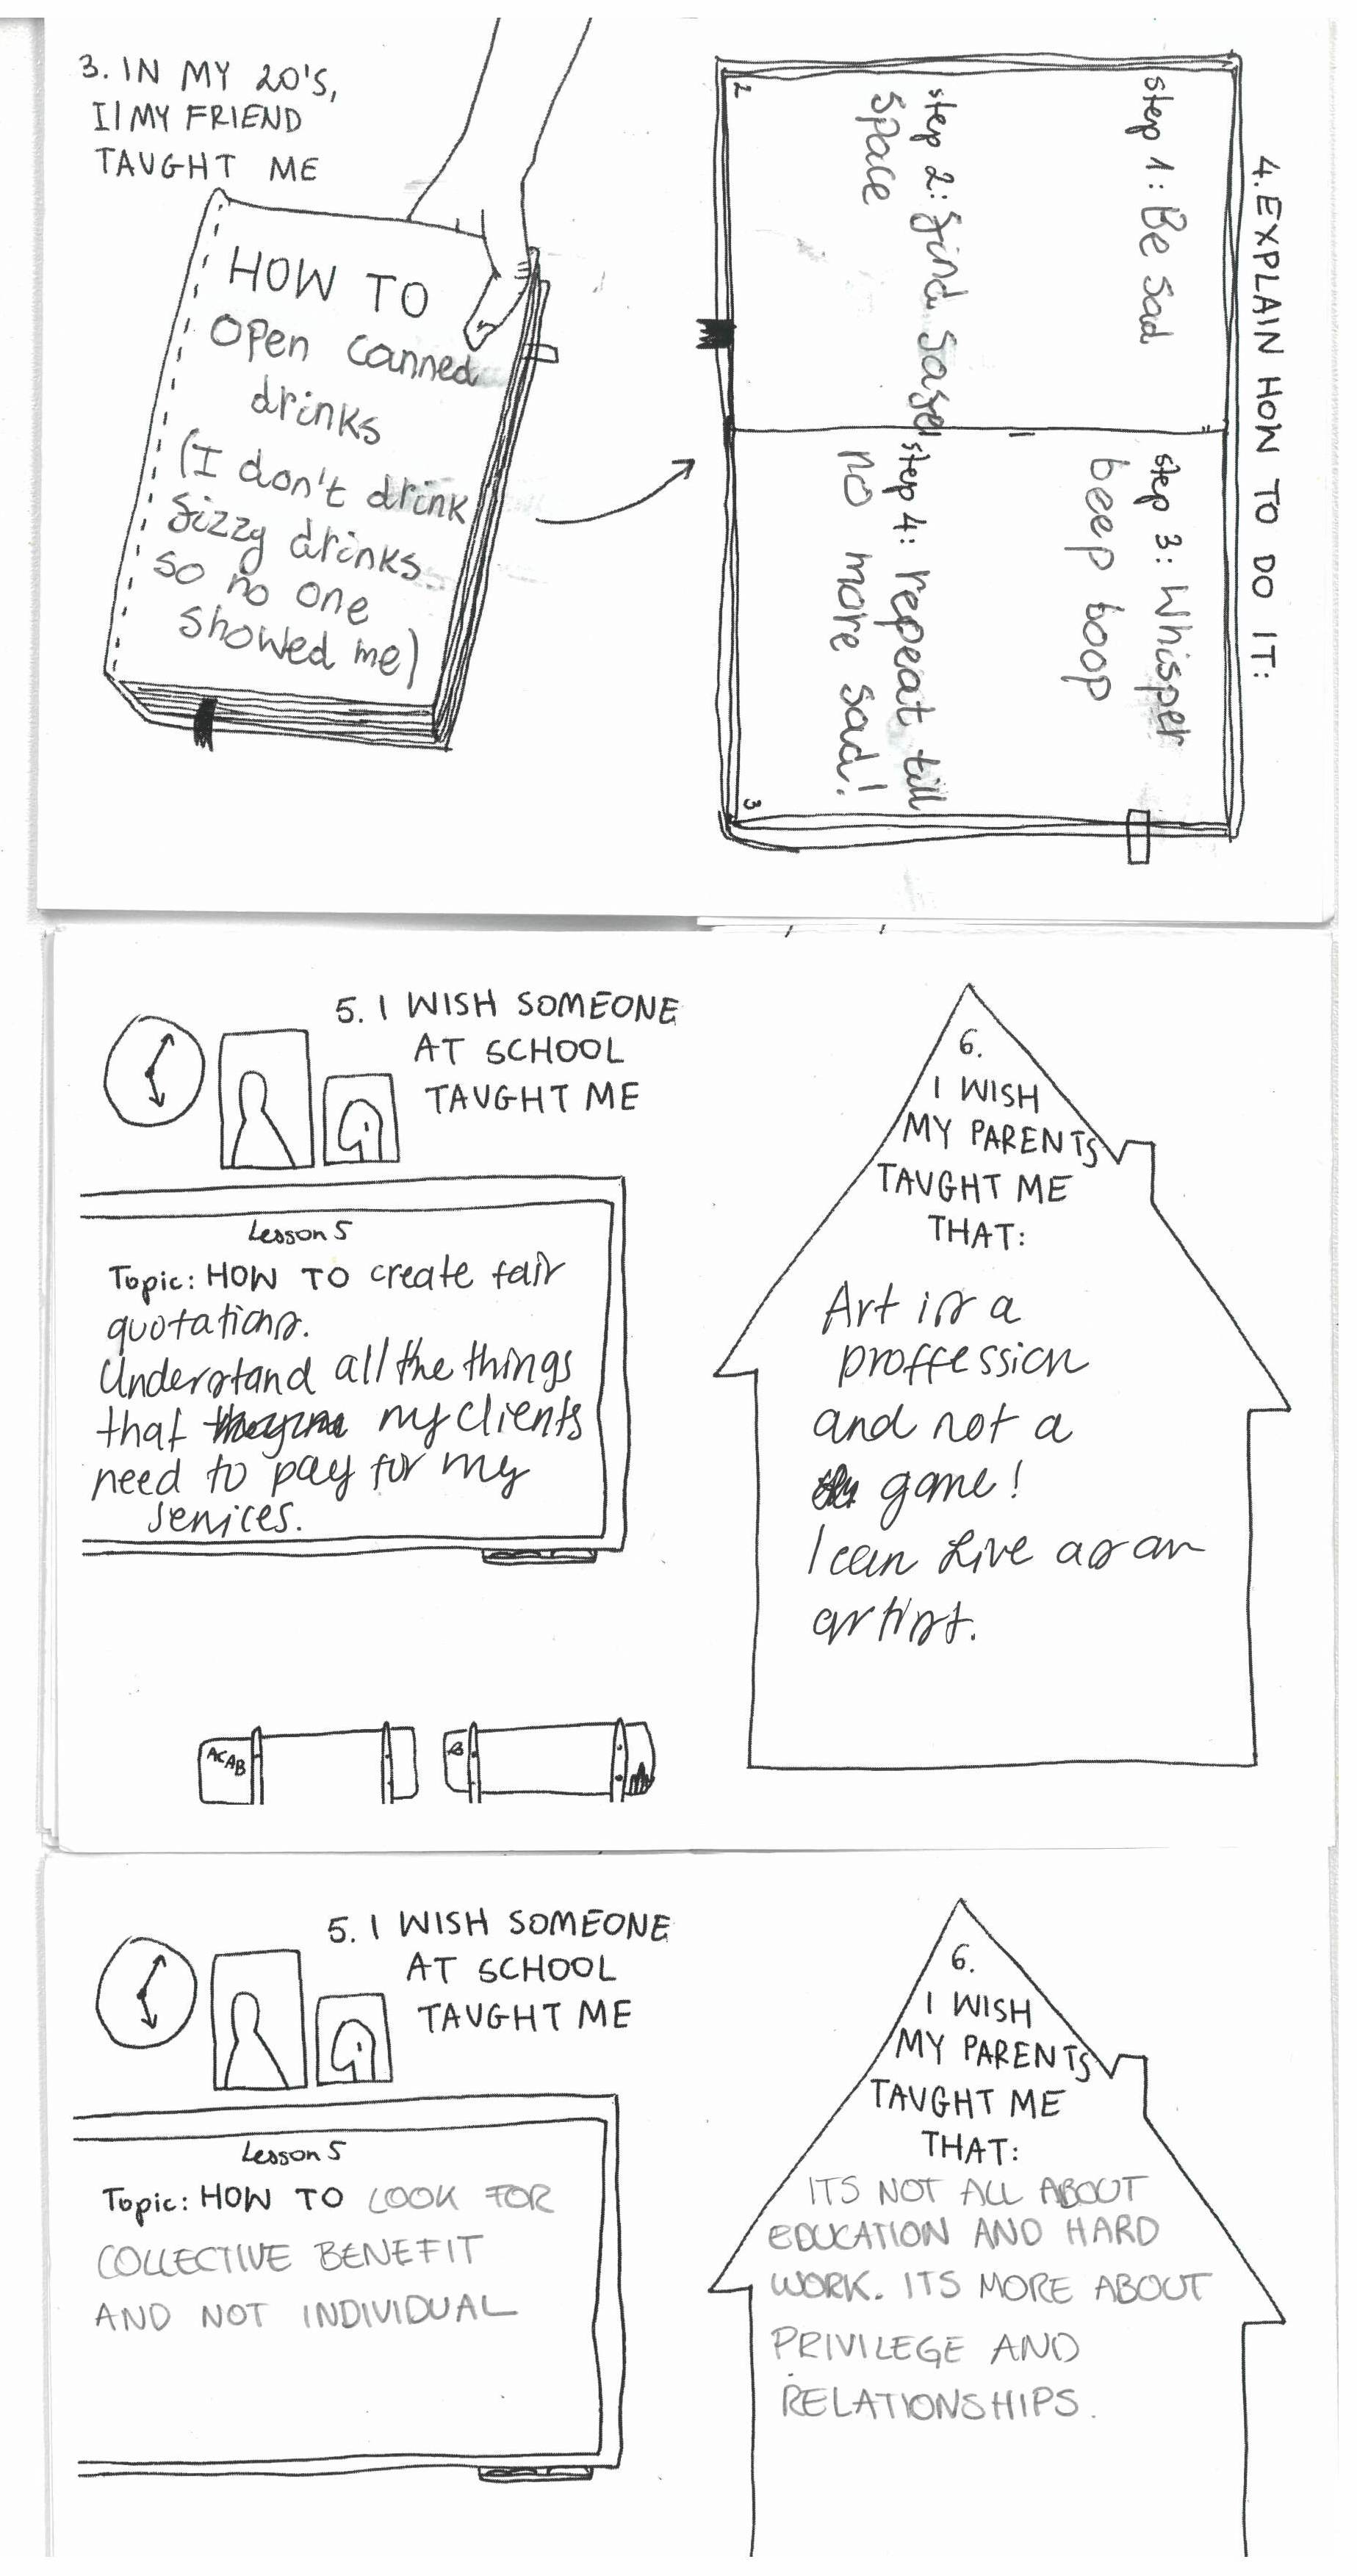 3. IN MY 20'S,
I/MY FRIEND
TAUGHT ME
HOW TO
open canned
drinks
(I don't drink
fizzy drinks
so no one
showed me)
4. EXPLAIN HOW TO DO IT:
step 1: Be sad
step 2: find safe
space
2
step 3: Whisper
beep boop
step 4: repeat till
no more sad!
3
5. I WISH SOMEONE
AT SCHOOL
TAUGHT ME
Lesson 5
Topic: HOW TO create fair
quotations.
Understand all the things
that my clients
need to pay for my
services.
ACAB
6.
I WISH
MY PARENTS
TAUGHT ME
THAT:
Art is a
proffession
and not a
game!
I can live as an
artist.
5. I WISH SOMEONE
AT SCHOOL
TAUGHT ME
Lesson 5
Topic: HOW TO LOOK FOR
COLLECTIVE BENEFIT
AND NOT INDIVIDUAL
6.
I WISH
MY PARENTS
TAUGHT ME
THAT:
ITS NOT ALL ABOUT
EDUCATION AND HARD
WORK. ITS MORE ABOUT
PRIVILEGE AND
RELATIONSHIPS.